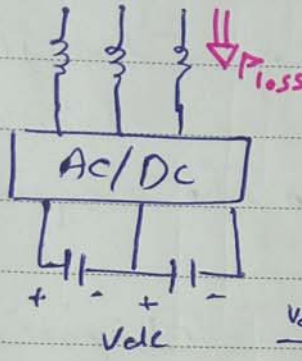 Ploss
AC/DC
+ - + -
Vdc